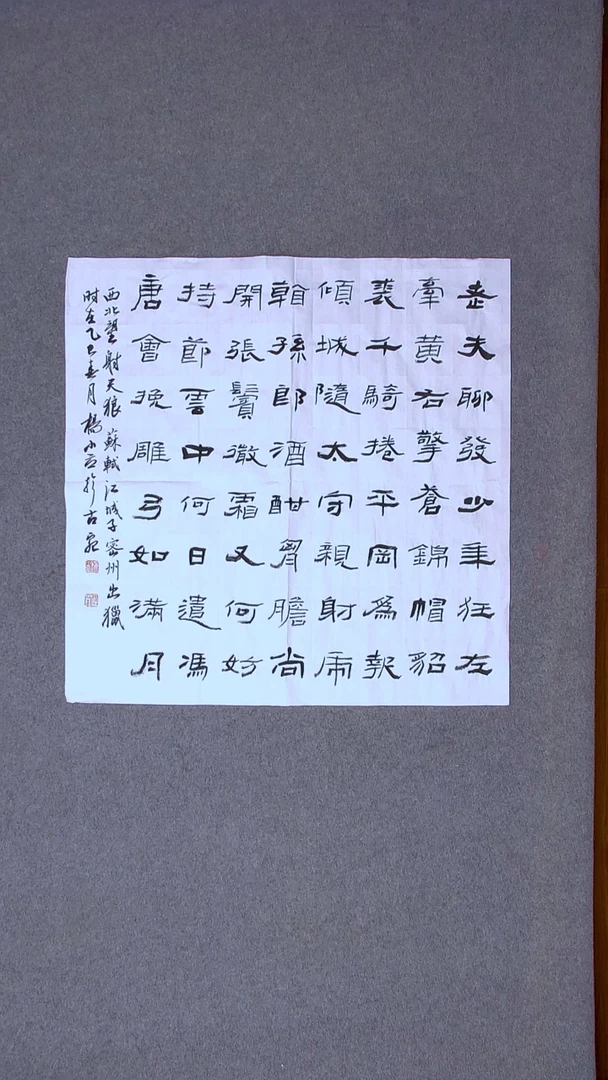 老夫聊發少年狂左
牽黃右擎蒼錦帽貂
裘千騎捲平岡為報
傾城隨太守親射虎
看孫郎酒酣胷膽尚
開張鬢微霜又何妨
持節雲中何日遣馮
唐會挽雕弓如滿月
西北望射天狼 蘇軾江城子密州出獵
时在乙巳春月楊小於古宛